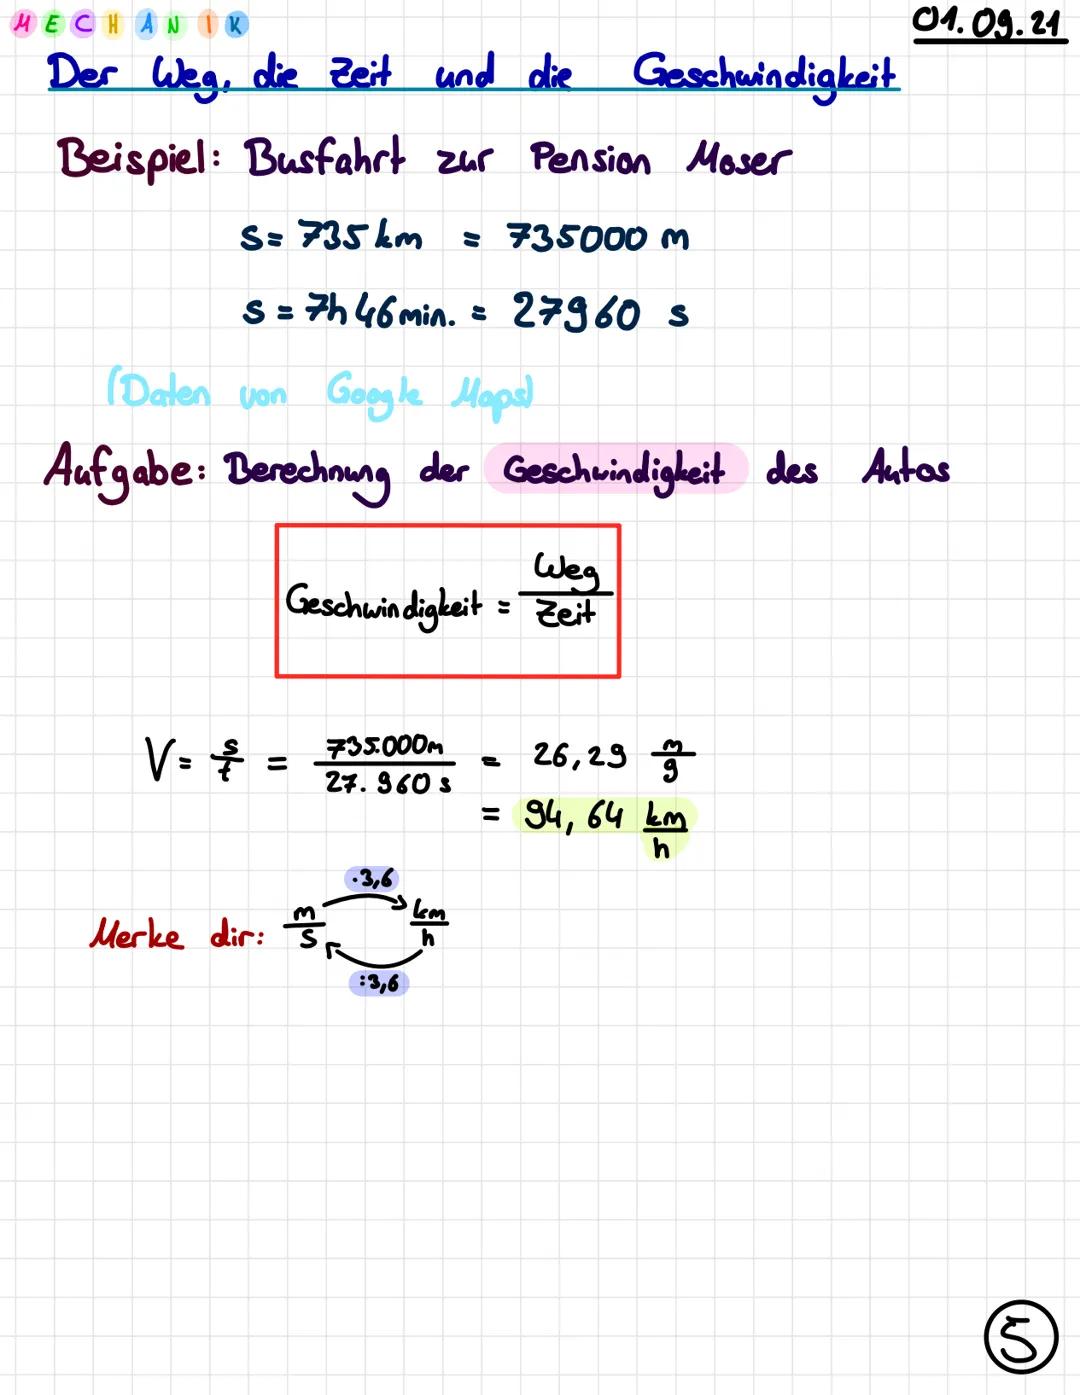 MECHANIK
01.09.21
Der Weg, die Zeit und die Geschwindigkeit
Beispiel: Busfahrt zur Pension Moser
s = 735 km = 735000 m
s = 7h 46 min. = 27960 s
(Daten von Google Maps)
Aufgabe: Berechnung der Geschwindigkeit des Autos
Geschwindigkeit = Weg / Zeit
V = s/t = 735.000m / 27.960 s = 26,29 m/g
= 94,64 km/h
·3,6
Merke dir: m/s km/h
:3,6
5